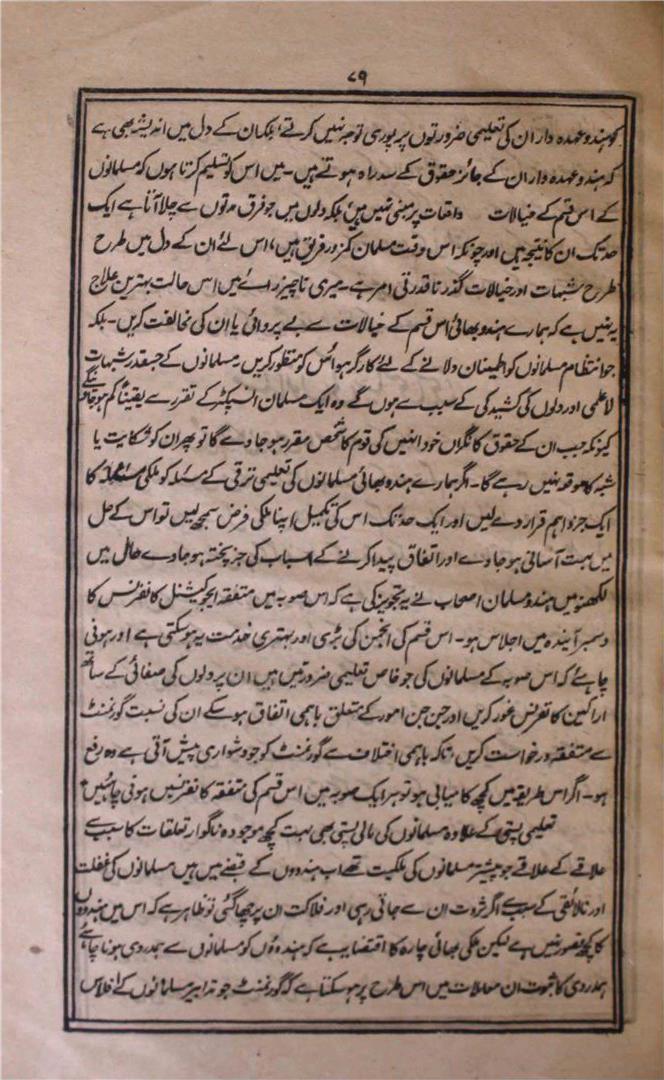 ۷۹
کو ہندو عہدہ دار ان کی تعلیمی ضرورتوں پر پوری توجہ نہیں کرتے، بلکہ ان کے دل میں اندیشہ بھی ہے
کہ ہندو عہدہ دار ان کے جائز حقوق کے سدراہ ہوتے ہیں۔ میں اس کو تسلیم کرتا ہوں کہ مسلمانوں
کے اس قسم کے خیالات واقعات پر مبنی نہیں ہیں بلکہ دلوں میں جو فرق مدتوں سے چلا آتا ہے ایک
حد تک ان کا نتیجہ ہیں اور چونکہ اس وقت مسلمان کمزور فریق ہیں، اس لئے ان کے دل میں طرح
طرح شبہات اور خیالات گذرنا قدرتی امر ہے۔ میری ناچیز رائے میں اس حالت بہترین علاج
یہ نہیں ہے کہ ہمارے ہندو بھائی اس قسم کے خیالات سے بے پروائی یا ان کی مخالفت کریں۔ بلکہ
جو انتظام مسلمانوں کو اطمینان دلانے کے لئے کارگر ہو اس کو منظور کریں۔ مسلمانوں کے جسقدر شبہات
لاعلمی اور دلوں کی کشیدگی کے سبب سے ہوں گے وہ ایک مسلمان انسپکٹر کے تقرر سے یقیناً کم ہو جاوینگے
کیونکہ جب ان کے حقوق کا نگراں خود انہیں کی قوم کا شخص مقرر ہو جاوے گا تو پھر ان کو شکایت یا
شبہ کا موقعہ نہیں رہے گا۔ اگر ہمارے ہندو بھائی مسلمانوں کی تعلیمی ترقی کے مسئلہ کو ملکی مسئلہ کا
ایک جزو اہم قرار دے لیں اور ایک حد تک اس کی تکمیل اپنا ملکی فرض سمجھ لیں تو اس کے حل
میں بہت آسانی ہو جاوے اور اتفاق پیدا کرنے کے اسباب کی جڑ پختہ ہو جاوے حال میں
لکھنؤ میں ہندو مسلمان اصحاب نے یہ تجویز کی ہے کہ اس صوبہ میں متفقہ ایجوکیشنل کانفرنس کا
دسمبر آیندہ میں اجلاس ہو۔ اس قسم کی انجمن کی بڑی اور بہتری خدمت یہ ہو سکتی ہے اور ہونی
چاہئے کہ اس صوبہ کے مسلمانوں کی جو خاص تعلیمی ضرورتیں ہیں ان پر دلوں کی صفائی کے ساتھ
اراکین کانفرنس غور کریں اور جن جن امور کے متعلق باہمی اتفاق ہو سکے ان کی نسبت گورنمنٹ
سے متفقہ درخواست کریں، تاکہ باہمی اختلاف سے گورنمنٹ کو جو دشواری پیش آتی ہے وہ رفع
ہو۔ اگر اس طریقہ میں کچھ کامیابی ہو تو ہر ایک صوبہ میں اس قسم کی متفقہ کانفرنسیں ہونی چاہئیں
تعلیمی پستی کے علاوہ مسلمانوں کی مالی پستی بھی بہت کچھ موجودہ ناگوار تعلقات کا سبب ہے
علاقے کے علاقے جو پیشتر مسلمانوں کی ملکیت تھے اب ہندوؤں کے قبضے میں ہیں مسلمانوں کی غفلت
اور نالائقی کے سبب سے اگر ثروت ان سے جاتی رہی اور فلاکت ان پر چھا گئی تو ظاہر ہے کہ اس میں ہندوؤں
کا کچھ قصور نہیں ہے لیکن ملکی بھائی چارہ کا اقتضا یہ ہے کہ ہندوؤں کو مسلمانوں سے ہمدردی ہونا چاہئے
ہمدردی کا ثبوت ان معاملات میں اس طرح پر ہو سکتا ہے کہ گورنمنٹ جو تدابیر مسلمانوں کے افلاس